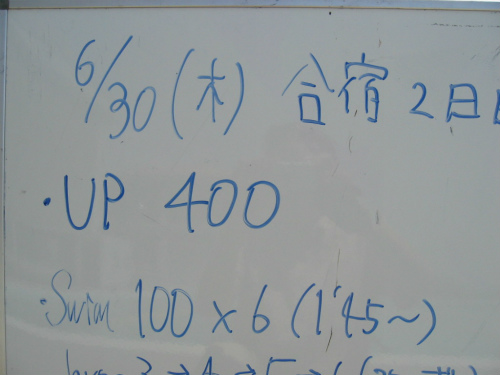 6/30 (木) 合宿 2日目
・UP 400
・Swim 100 × 6 (1'45~)